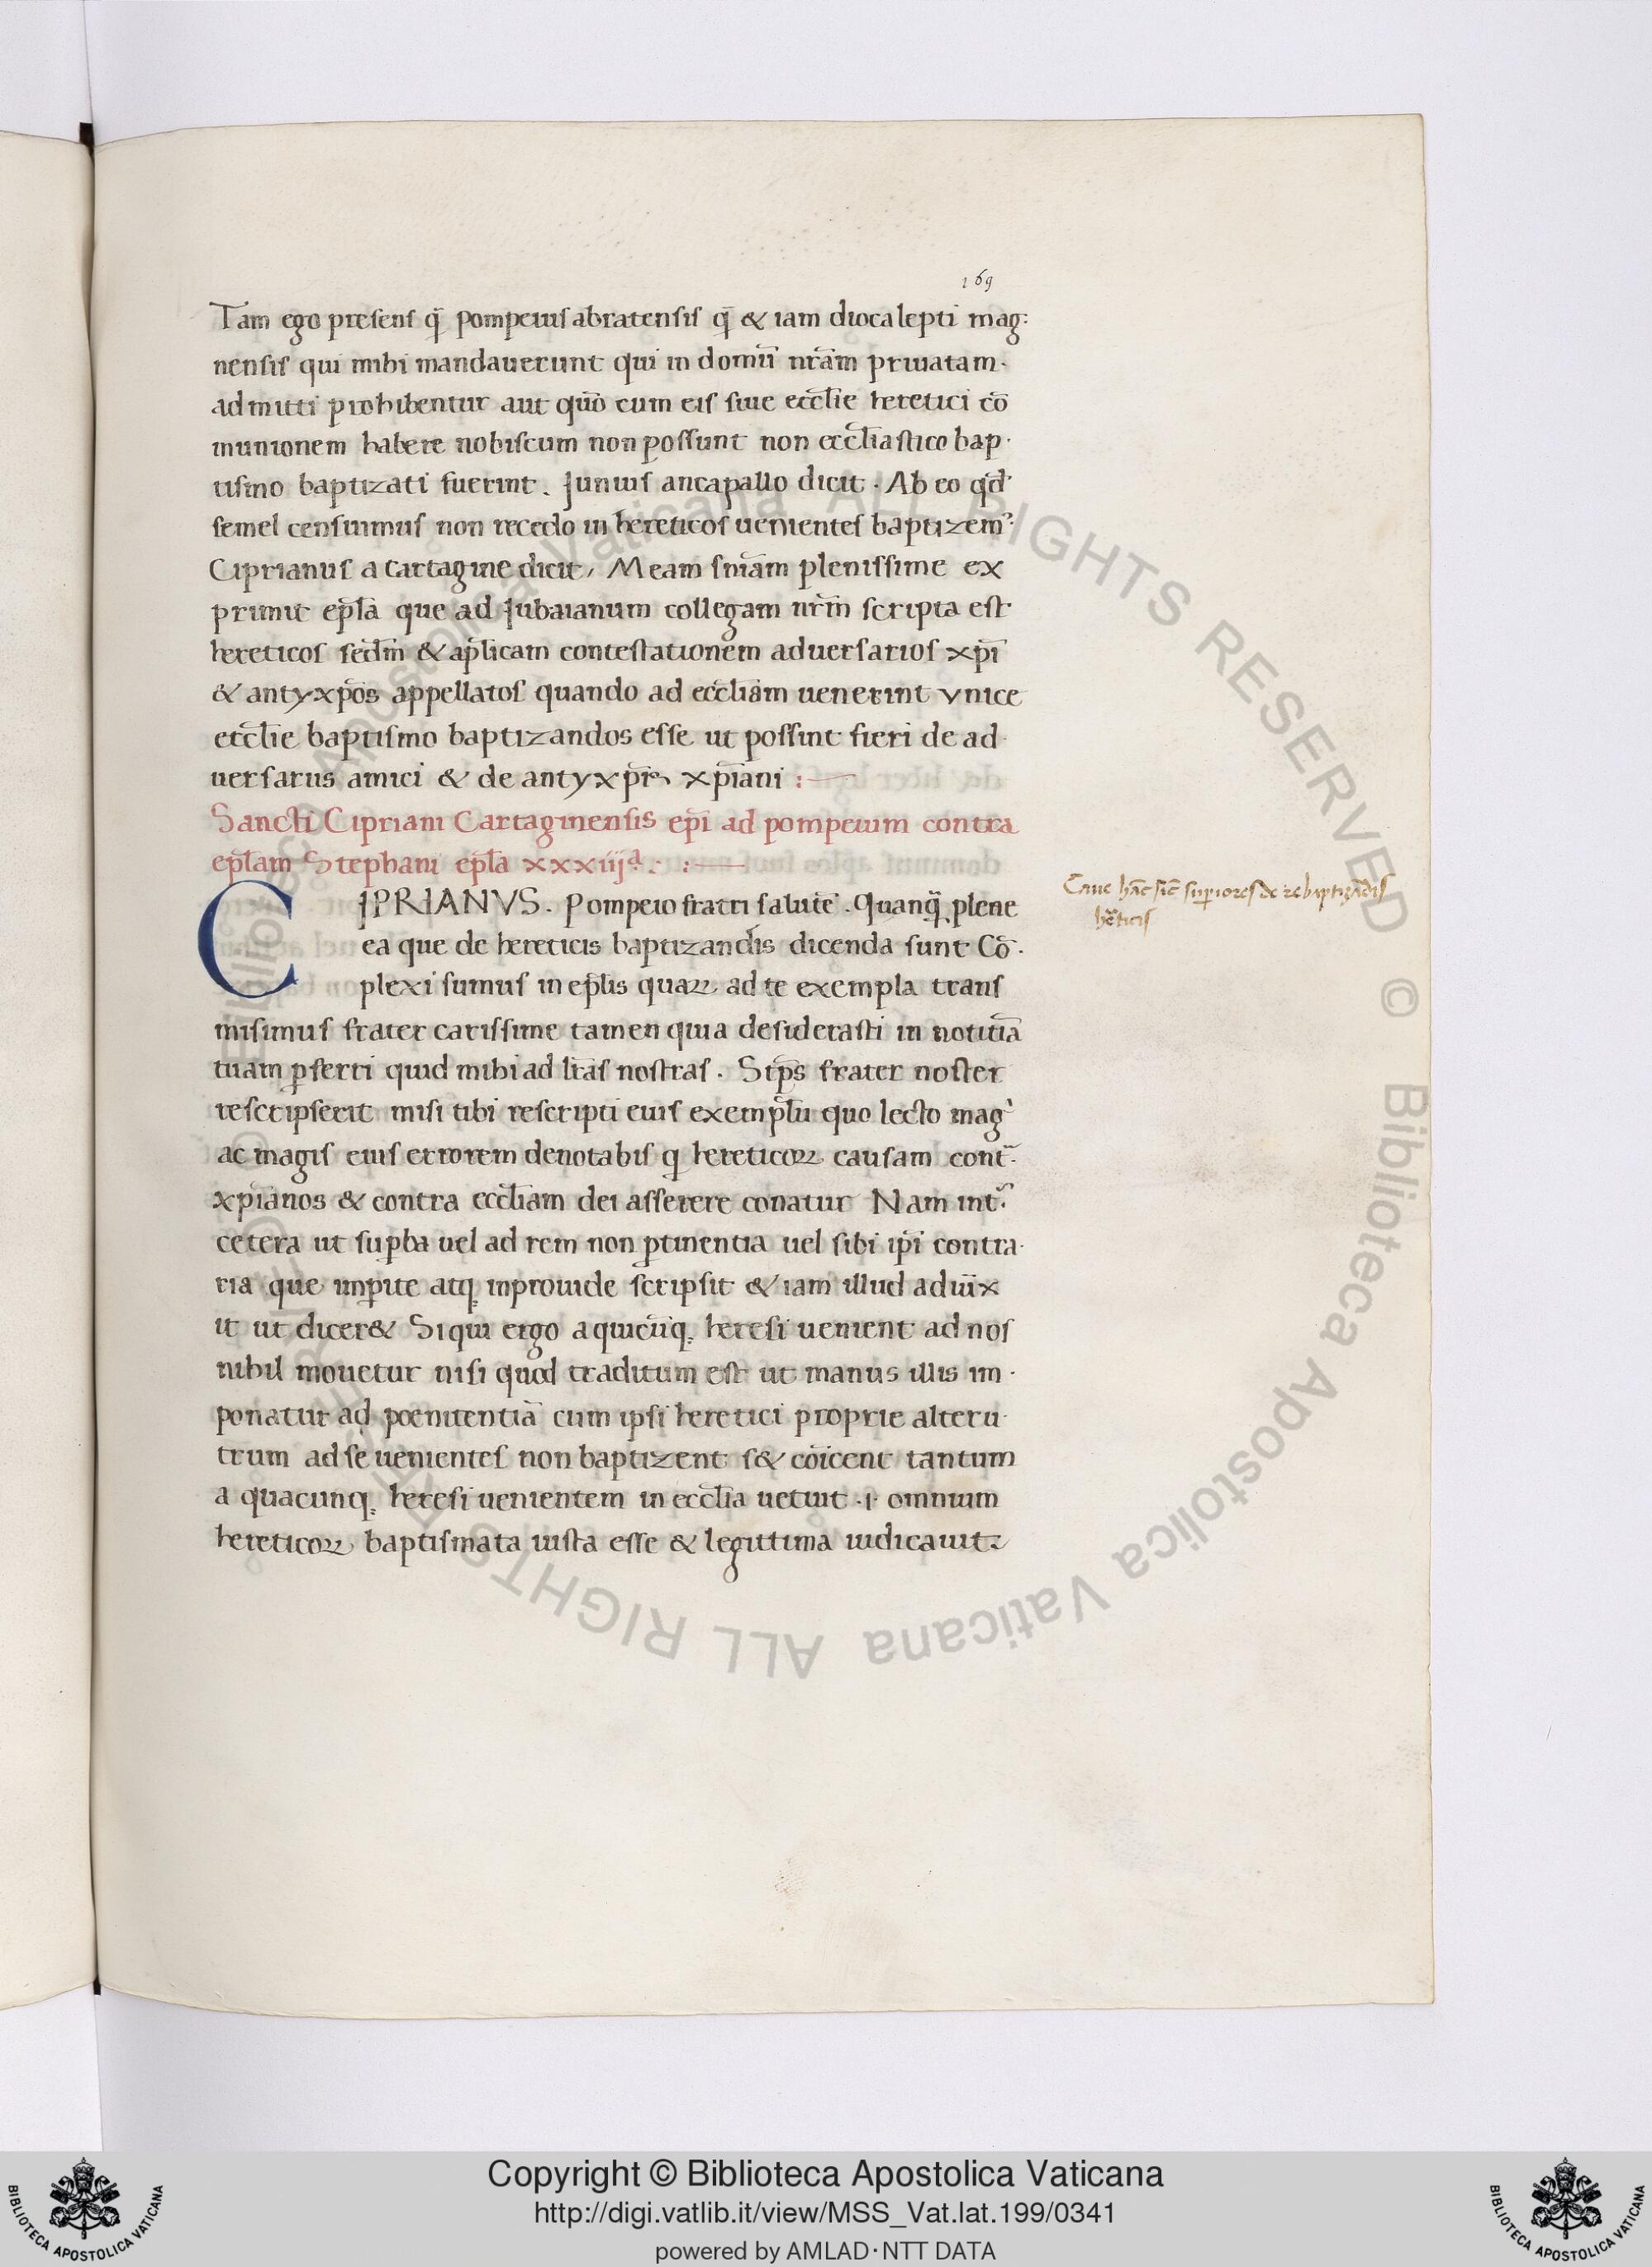 169
Tam ego presens q̄ pompeius abratensis q̄ & iam dioca lepti mag:
nensis qui mihi mandauerunt qui in domū nr̄am priuatam.
admitti prohibentur aut quō cum eis siue eccl̄ie heretici cō
munionem habere nobiscum non possunt non eccl̄iastico bap.
tismo baptizati fuerint. Junius ancapallo dicit. Ab eo qd̄
semel censuimus non recedo in hereticos uenientes baptizem᷒.
Ciprianus a cartagine dicit, Meam sniām plenissime ex
primit epl̄a que ad Jubaianum collegam nr̄m scripta est
hereticos sedm̄ & apl̄icam contestationem aduersarios xpī
& antyxpōs appellatos quando ad eccl̄iam uenerint vnice
eccl̄ie baptismo baptizandos esse ut possint fieri de ad
uersariis amici & de antyxpīs xpīani :—
Sancti Cipriani Cartaginensis epī ad pompeium contra
epl̄am Stephani epl̄a xxxiijª. :—
CIPRIANVS. Pompeio fratri salutē. Quanq̄ plene
ea que de hereticis baptizandis dicenda sunt Cō.
plexi sumus in epl̄is quaꝝ ad te exempla trans
misimus frater carissime tamen quia desiderasti in notitiā
tuam ꝑferri quid mihi ad lr̄as nostras. Stp̄s frater noster
rescripserit misi tibi rescripti eius exempl̄u quo lecto mag̛
ac magis eius errorem denotabis q̄ hereticoꝝ causam cont̄.
xpīanos & contra eccl̄iam dei asserere conatur Nam int.᷒
cetera ut suꝑba uel ad rem non ꝑtinentia uel sibi ip̄i contra.
ria que imꝑite atq; inprouide scripsit & iam illud adiūx
it ut dicer& Si qui ergo a quicūq; heresi uenient ad nos
nihil mouetur nisi quod traditum est ut manus illis im.
ponatur ad poenitentiā cum ipsi heretici proprie alteru
trum ad se uenientes non baptizent s& cōicent tantum
a quacunq; heresi uenientem in eccl̄ia uetuit .i. omnium
hereticoꝝ baptismata iusta esse & legittima iudicauit
Caue hāc sic̄ suꝑiores de rebaptizādis
hēticis
© Biblioteca Apostolica Vaticana ALL RIGHTS RESERVED © Biblioteca Apostolica Vaticana ALL RIGHTS RESERVED
Copyright © Biblioteca Apostolica Vaticana
http://digi.vatlib.it/view/MSS_Vat.lat.199/0341
powered by AMLAD·NTT DATA
BIBLIOTECA APOSTOLICA VATICANA
BIBLIOTECA APOSTOLICA VATICANA